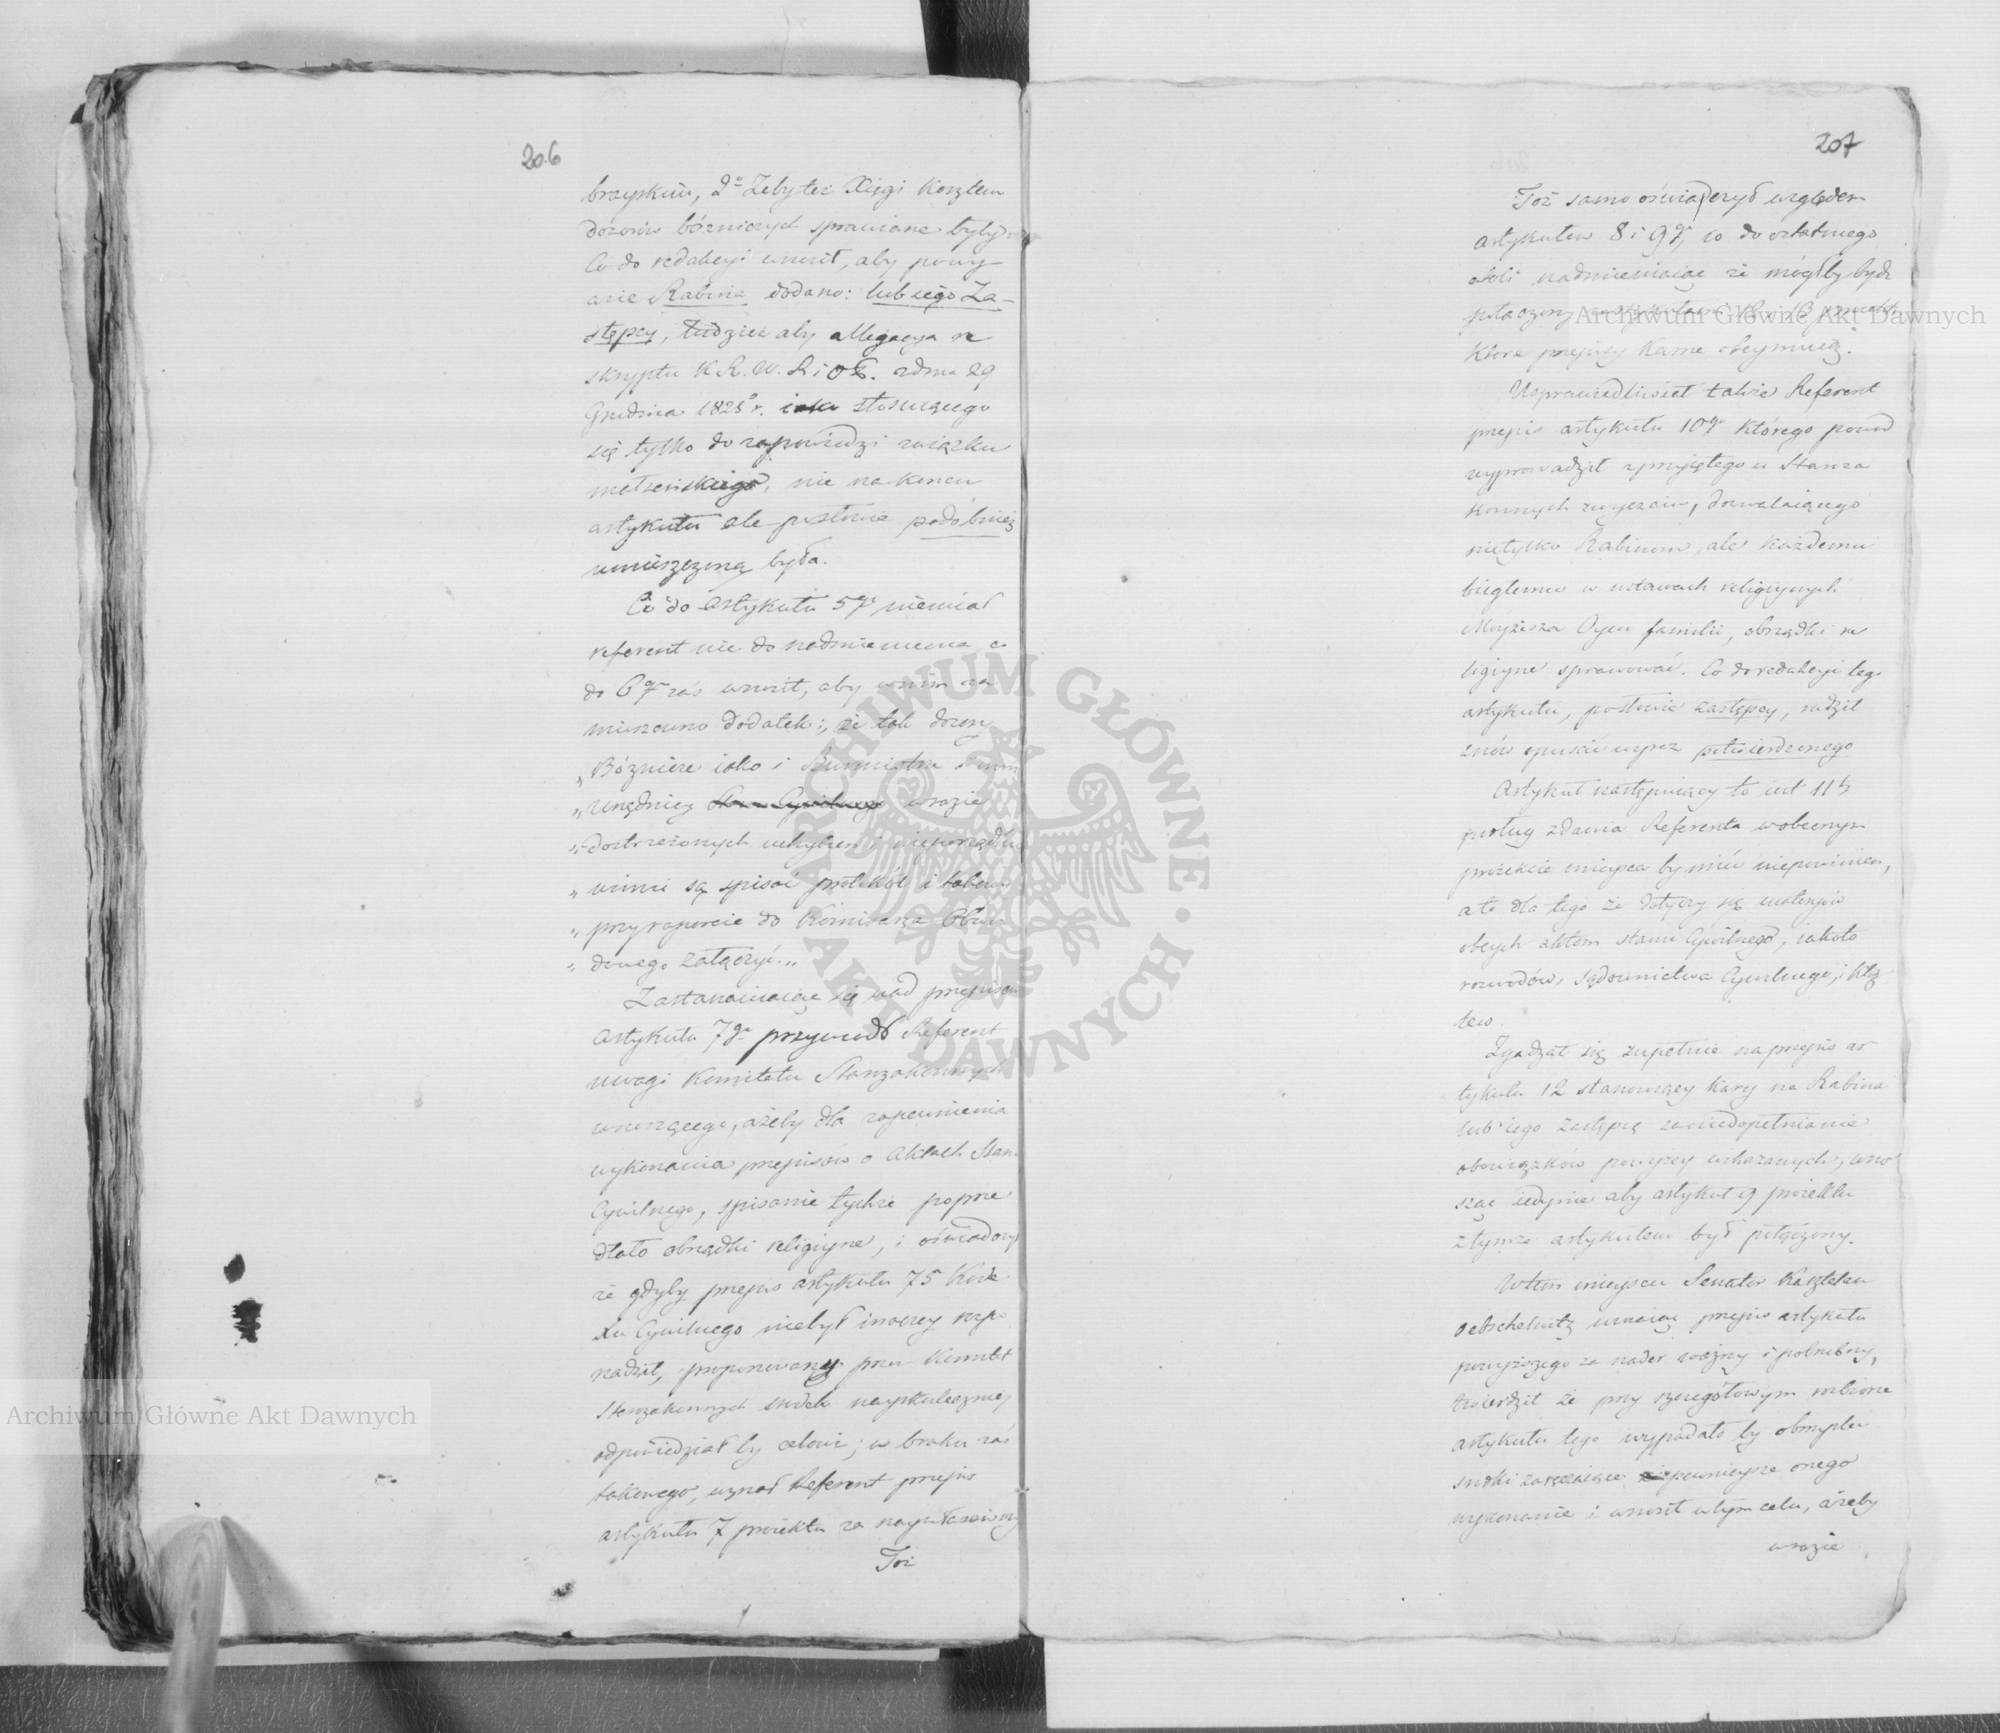 206
brayskim, 2º Żeby też Xięgi kosztem
dozorów bóżniczych sprawiane były
Co do redakcyi wnosił, aby powy
razie Rabina dodano: lub iego Za-
stępcy, tudzież aby allegacya re
skryptu K. R. W. R. i O. P. zdnia 29
Grudnia 1825 r. iako stosuiącego
się tylko do zapowiedzi związku
małżeńskiego, nie na końcu
artykułu ale po słowie podobnież
umieszczoną była.
Co do Artykułu 5go niemiał
referent nic do nadmienienia, co
do 6go zaś wnosił, aby w nim za
mieszczono dodatek: że tak dozory
„Bóżnicze iako i Burmistrz i inni
„Urzędnicy Stanu Cywilnego w razie
„dostrzeżonych uchybień i nieporządku
„winni są spisać protokół i takowy
„przy raporcie do Kommissarza Obwo
„dowego załączyć.„
Zastanawiaiąc się nad przepisem
Artykułu 7go przywiódł Referent
uwagi Komitetu Starozakonnych
wnoszącego, ażeby dla zapewnienia
wykonania przepisów o Aktach Stanu
Cywilnego, spisanie tychże poprze
dzało obrządki religiyne, i oświadczył
że gdyby przepis artykułu 75 Kode
xu Cywilnego niebył inaczey rozpo
rządził, proponowany przez Komitet
Starozakonnych środek nayskuteczniey
odpowiedział by celowi; w braku zaś
takowego, uznał Referent przepis
artykułu 7 proiektu za naywłaściwszy
Toż
207
Toż samo oświadczył względem
Artykułów 8 i 9go, co do ostatniego
atoli nadmieniaiąc że mógłby bydź
połączony z artykułem 12 i 13 proiektu
które przepisy karne obeymuią.
Usprawiedliwiał także Referent
przepis artykułu 10go którego powód
wyprowadził z przyiętego u Staroza
konnych zwyczaiu, dozwalaiącego
nietylko Rabinom, ale każdemu
biegłemu w ustawach religiynych
Moyżesza Oycu familii, obrządki re
ligiyne sprawować. Co do redakcyi tego
artykułu, po słowie zastępcy, radził
znów opuścić wyraz potwierdzonego
Artykuł następuiący to iest 11ty
podług zdania Referenta w obecnym
proiekcie mieysca by mieć niepowinien,
a to dla tego że dotyczy się materyów
obcych aktom stanu Cywilnego, iakoto
rozwodów, Sądownictwa Cywilnego, i klą
tew.
Zgadzał się zupełnie na przepis ar
tykułu 12 stanowiący kary na Rabina
lub iego Zastępcę za niedopełnianie
obowiązków powyżey wskazanych, wno
sząc iedynie aby artykuł 9 proiektu
z tymże artykułem był połączony.
W tem mieyscu Senator Kasztelan
Oebschelwitz uznaiąc przepis artykułu
powyższego za nader ważny i potrzebny,
twierdził że przy szczegółowym rozbiorze
artykułu tego wypadało by obmyśleć
środki zaręczaiące pewnieysze onego
wykonanie i wnosił w tym celu, ażeby
w razie
Archiwum Główne Akt Dawnych
Archiwum Główne Akt Dawnych
ARCHIWUM GŁÓWNE • AKT DAWNYCH •